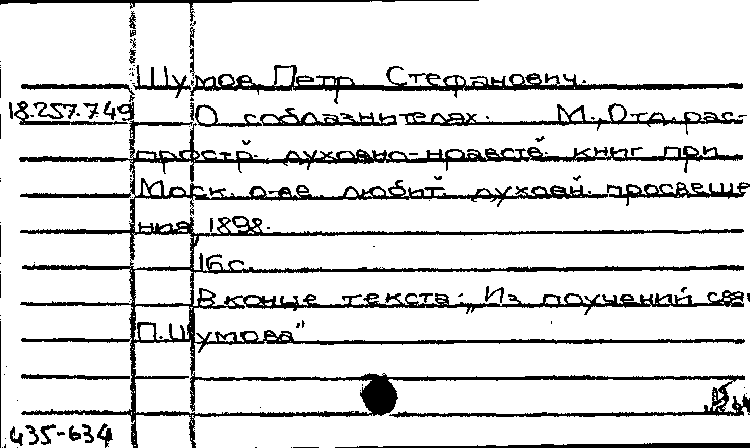 Шумов, Петр Стефанович.
18.257.749 О соблазнителях. М., Отд. рас-
простр. духовно-нравств. книг при
Моск. о-ве любит. духовн. просвеще
ния, 1898.
16 с.
В конце текста: „Из поучений свящ
П. Шумова"
435-634